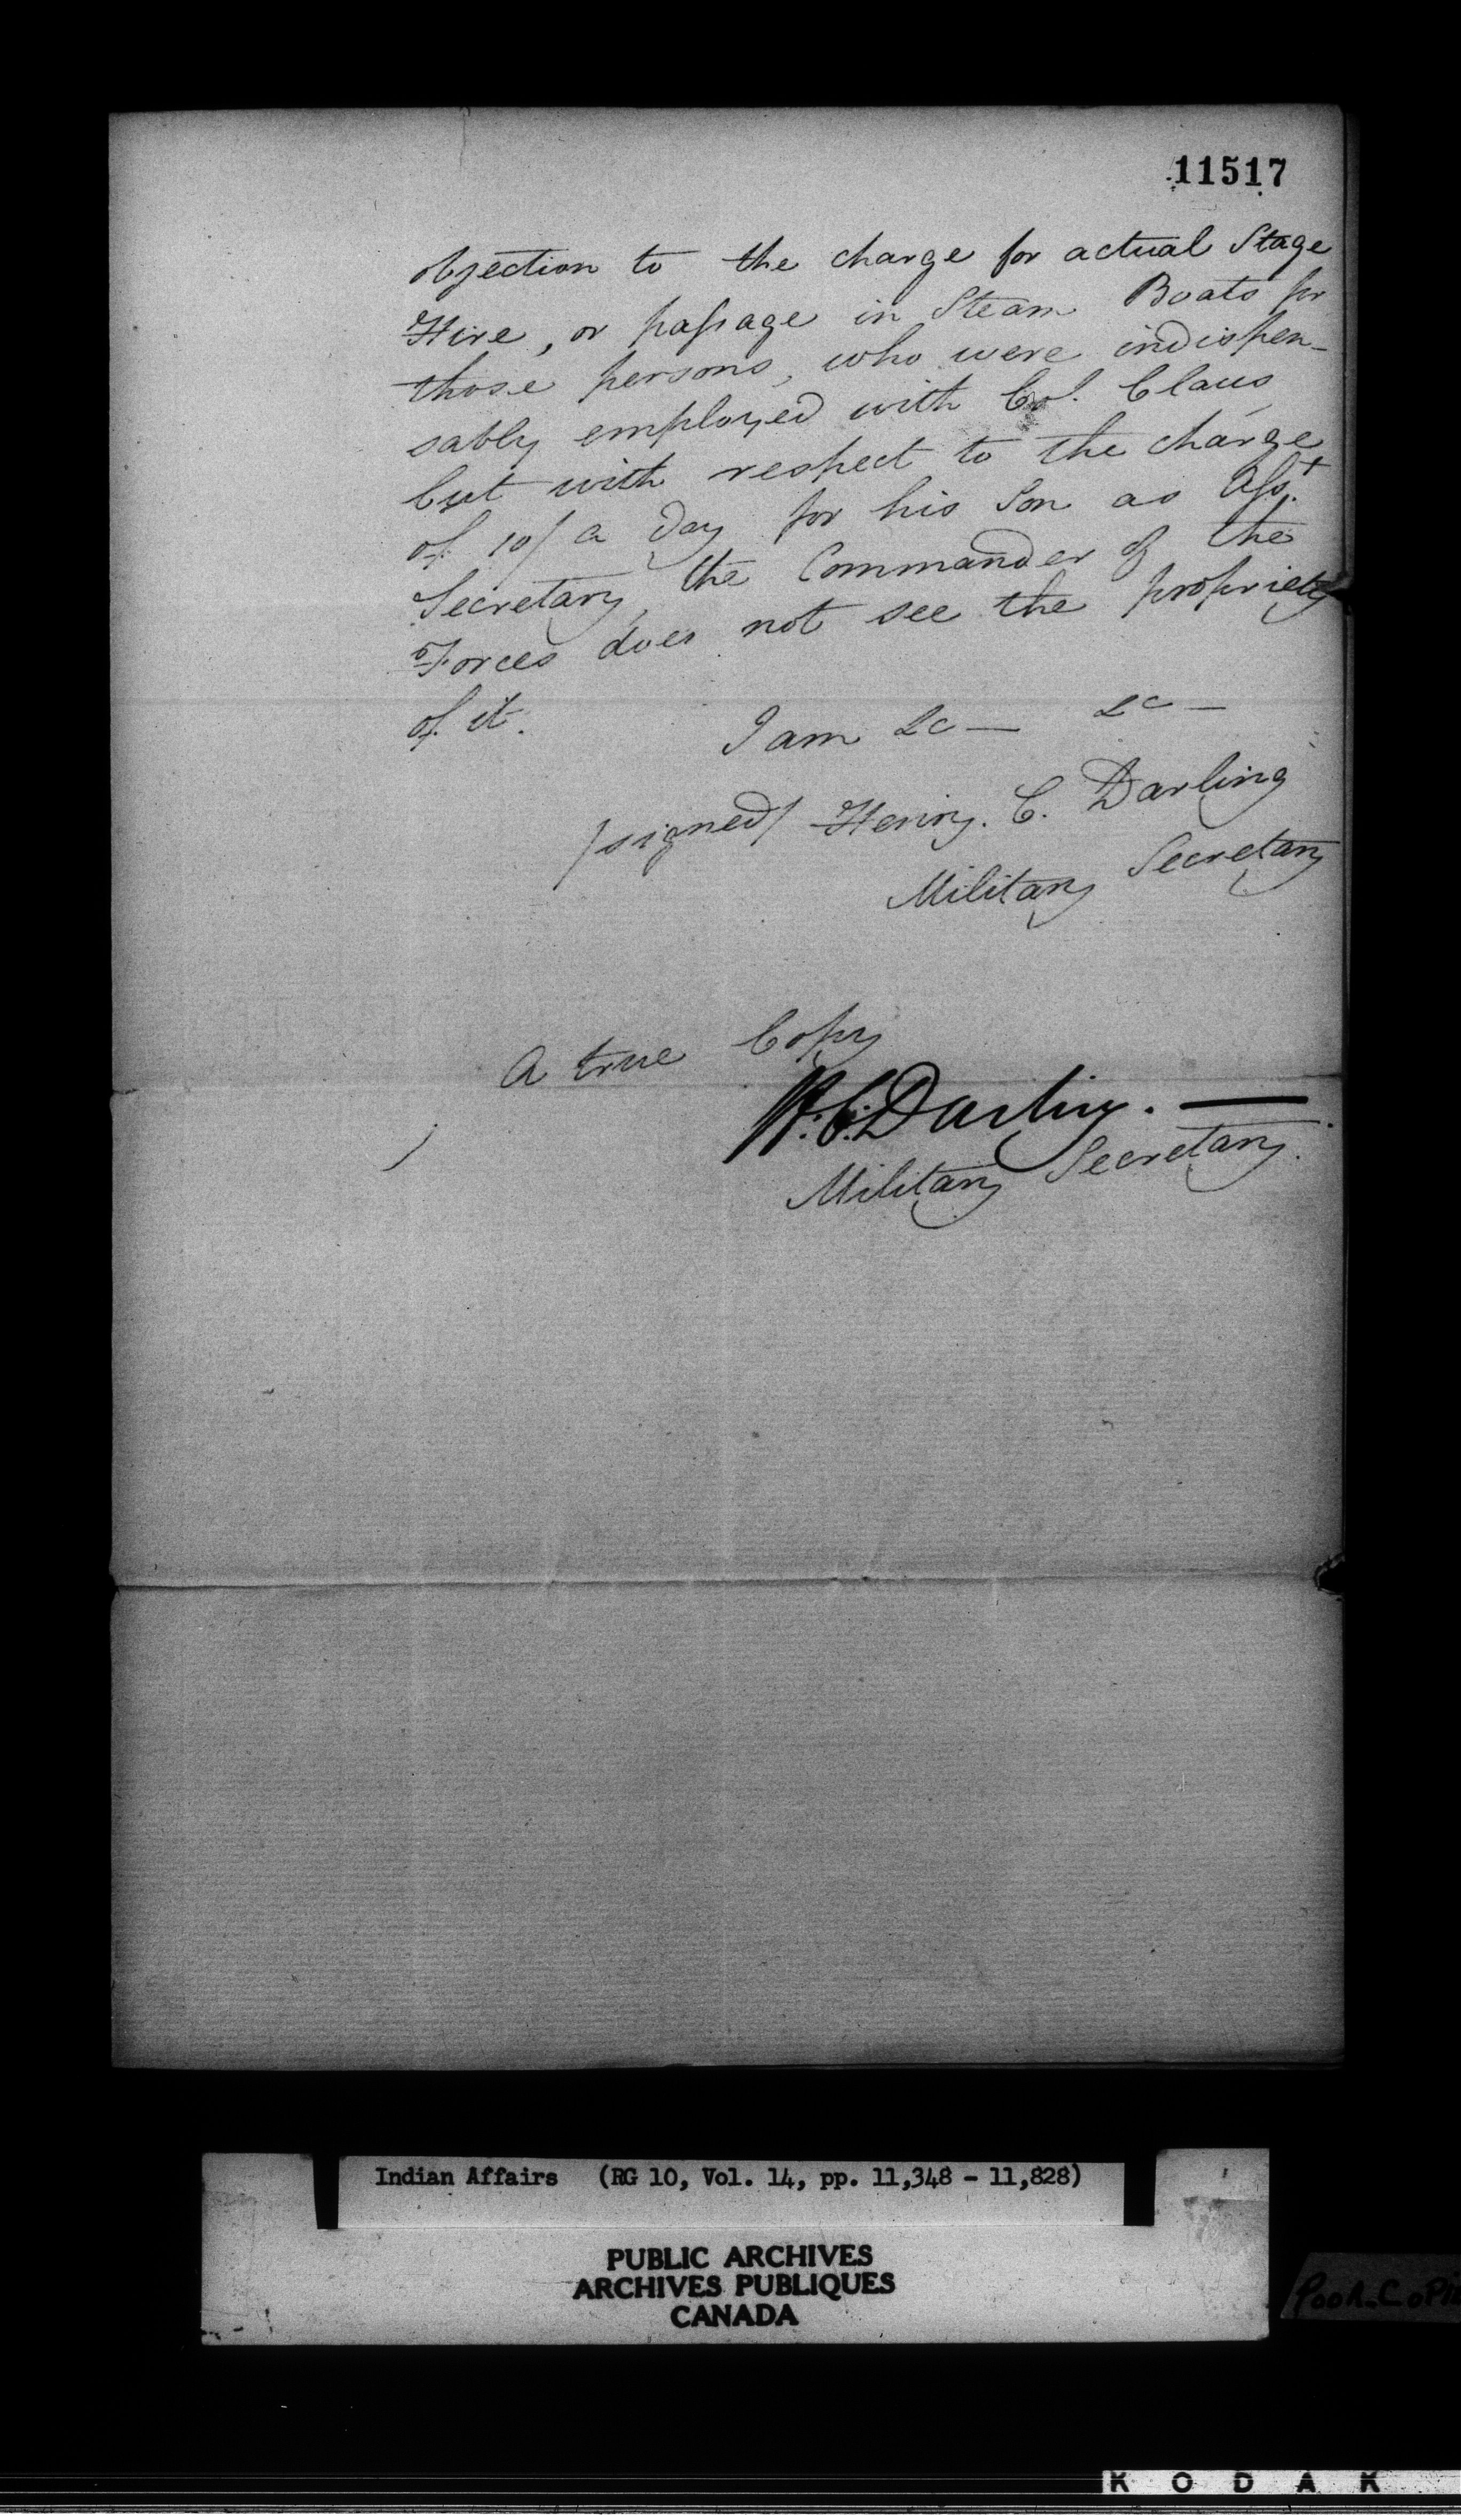 11517
objection to the charge for actual Stage
Hire, or passage in Steam Boats for
those persons, who were indispen-
sably employed with Col. Claus,
but with respect to the charge
of 10/ a day for his Son as Asst.
Secretary, the Commander of the
Forces does not see the propriety
of it.
I am &c — &c —
/signed/ Henry. C. Darling
Military Secretary
A true Copy
H. C. Darling. —
Military Secretary.
Indian Affairs (RG 10, Vol. 14, pp. 11,348 - 11,828)
PUBLIC ARCHIVES
ARCHIVES PUBLIQUES
CANADA
KODAK